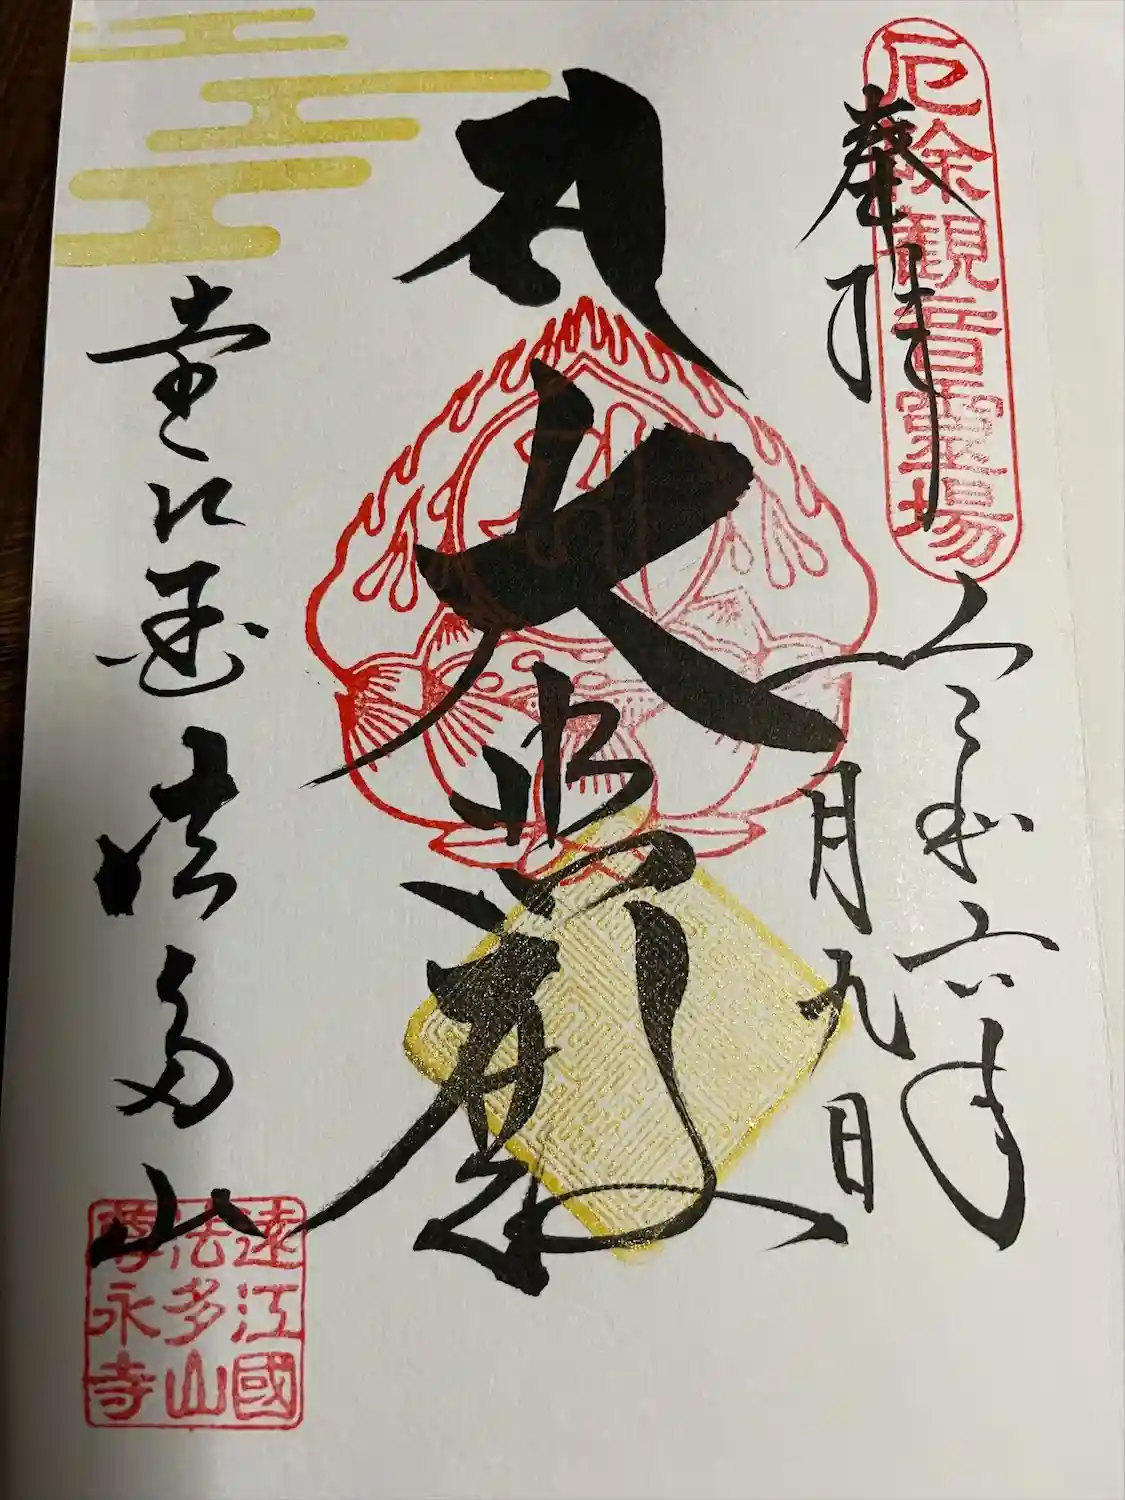 厄除観音霊場
奉拝
令和六年
一月九日
大
遠江国法多山
遠江國
法多山
尊永寺